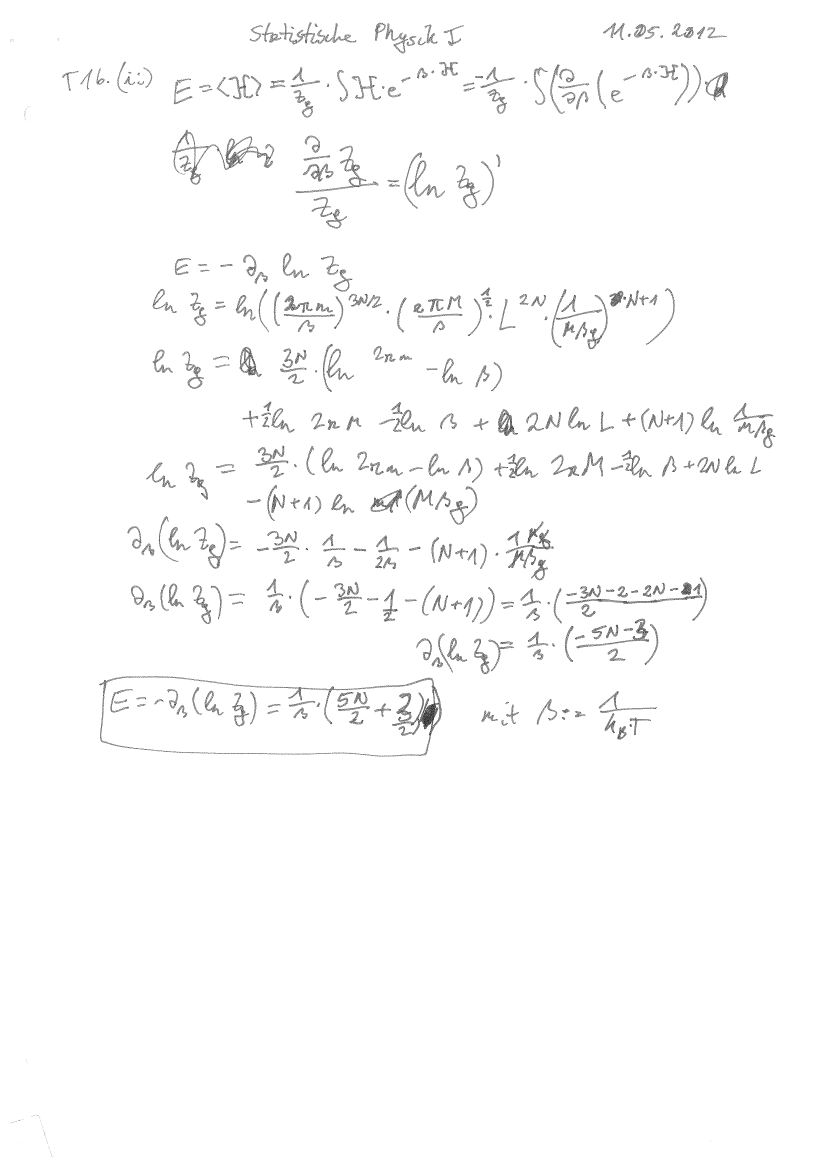 Statistische Physik I 11.05.2012
T16.(ii) E = <ℋ> = 1/Z_g · ∫ ℋ · e^(-β·ℋ) = -1/Z_g · ∫ (∂/∂β (e^(-β·ℋ)))
(∂/∂β Z_g)/Z_g = (ln Z_g)'
E = -∂_β ln Z_g
ln Z_g = ln((2πm/β)^(3N/2) · (2πM/β)^(1/2) · L^(2N) · (1/(Mβg))^(N+1))
ln Z_g = 3N/2 · (ln 2πm - ln β)
+ 1/2 ln 2πM - 1/2 ln β + 2N ln L + (N+1) ln 1/(Mβg)
ln Z_g = 3N/2 · (ln 2πm - ln β) + 1/2 ln 2πM - 1/2 ln β + 2N ln L
- (N+1) ln (Mβg)
∂_β (ln Z_g) = -3N/2 · 1/β - 1/(2β) - (N+1) · (1 Mg)/(Mβg)
∂_β (ln Z_g) = 1/β · (-3N/2 - 1/2 - (N+1)) = 1/β · ((-3N-2-2N-1)/2)
∂_β (ln Z_g) = 1/β · ((-5N-3)/2)
E = -∂_β (ln Z_g) = 1/β · (5N/2 + 3/2) mit β := 1/(k_B·T)